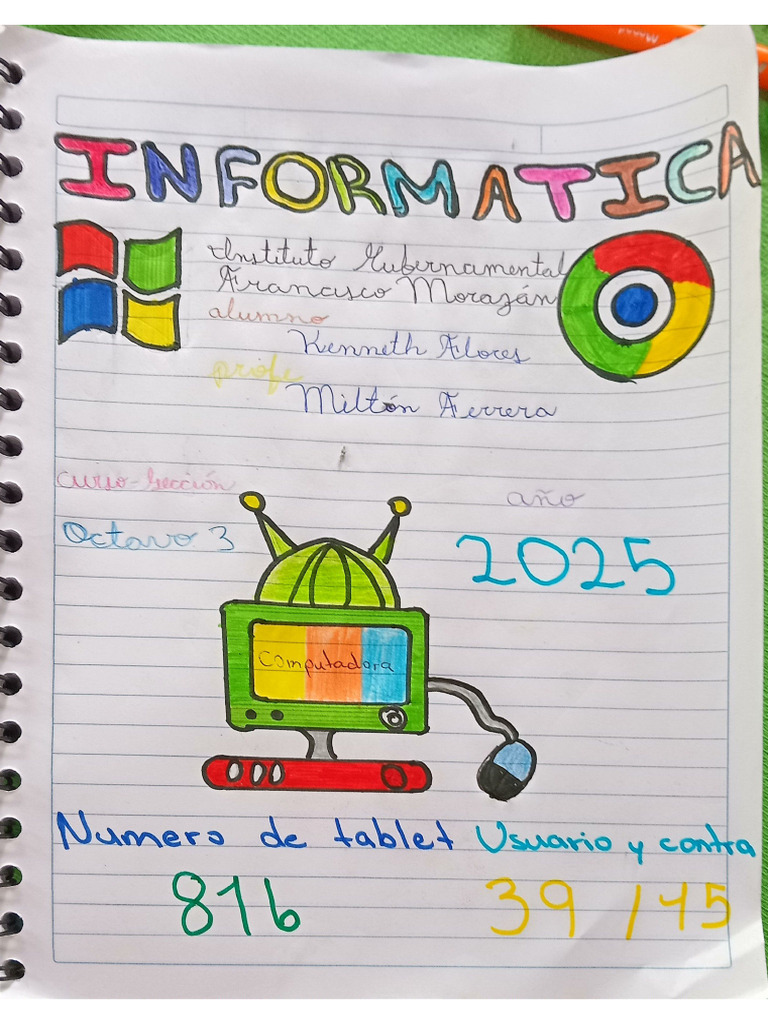 INFORMATICA
Instituto Gubernamental
Francisco Morazán
alumno
Kenneth Flores
profe
Miltón Ferrera
curso-Sección
año
Octavo 3
2025
Computadora
Numero de tablet Usuario y contra
816 39 / 15